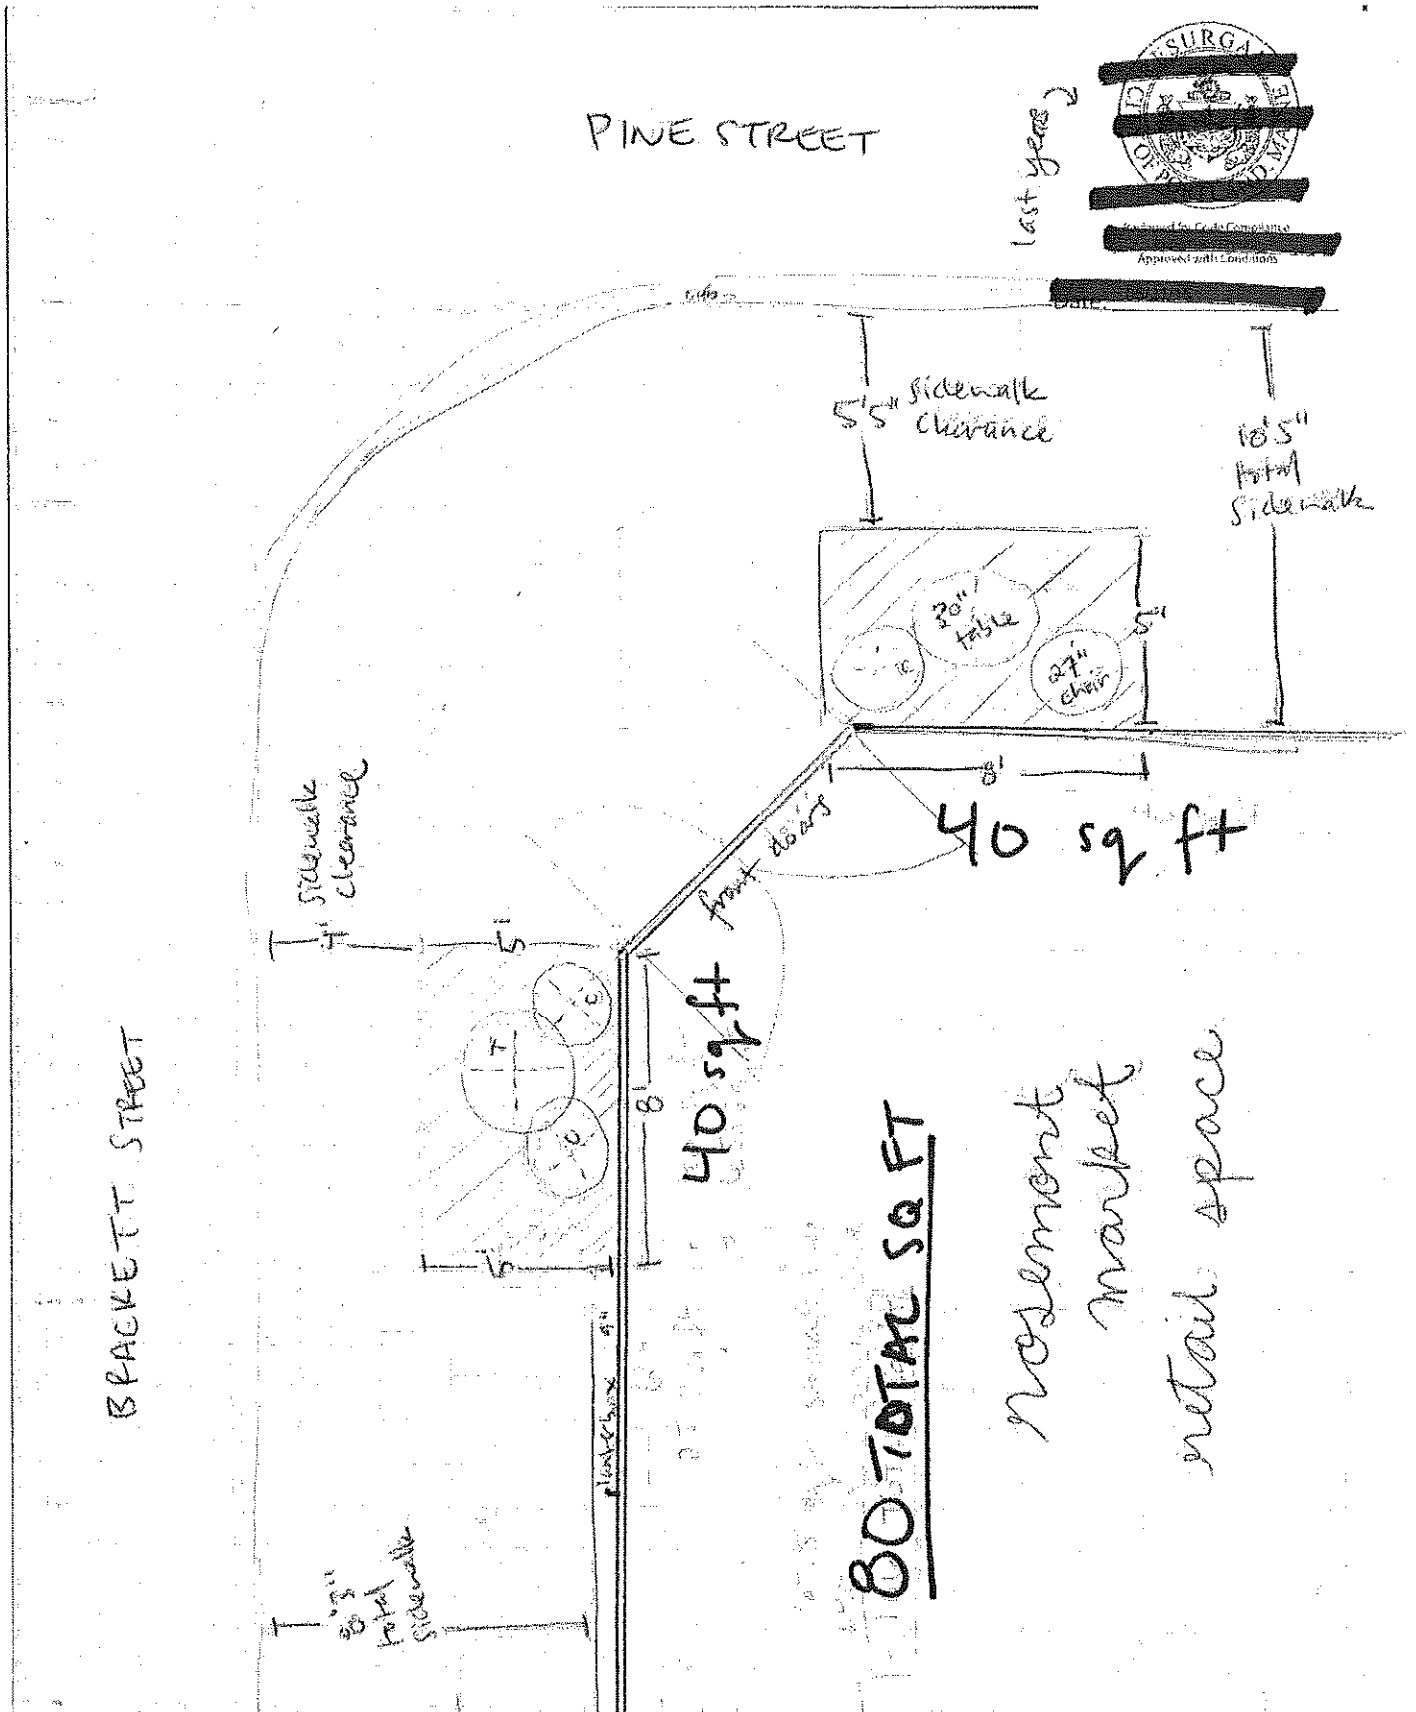 PINE STREET
last years
RESURGA
Reviewed for Code Compliance
Approved with Conditions
Date:
curb
5'5" sidewalk
clearance
10'5"
total
sidewalk
30"
table
C
27"
chair
5"
8'
40 sq ft
front doors
sidewalk
clearance
4'
5'
C
T
C
8'
40 sq ft
5'
BRACKETT STREET
planter box 9"
8'3"
total
sidewalk
80 TOTAL SQ FT
rosemont
market
retail space